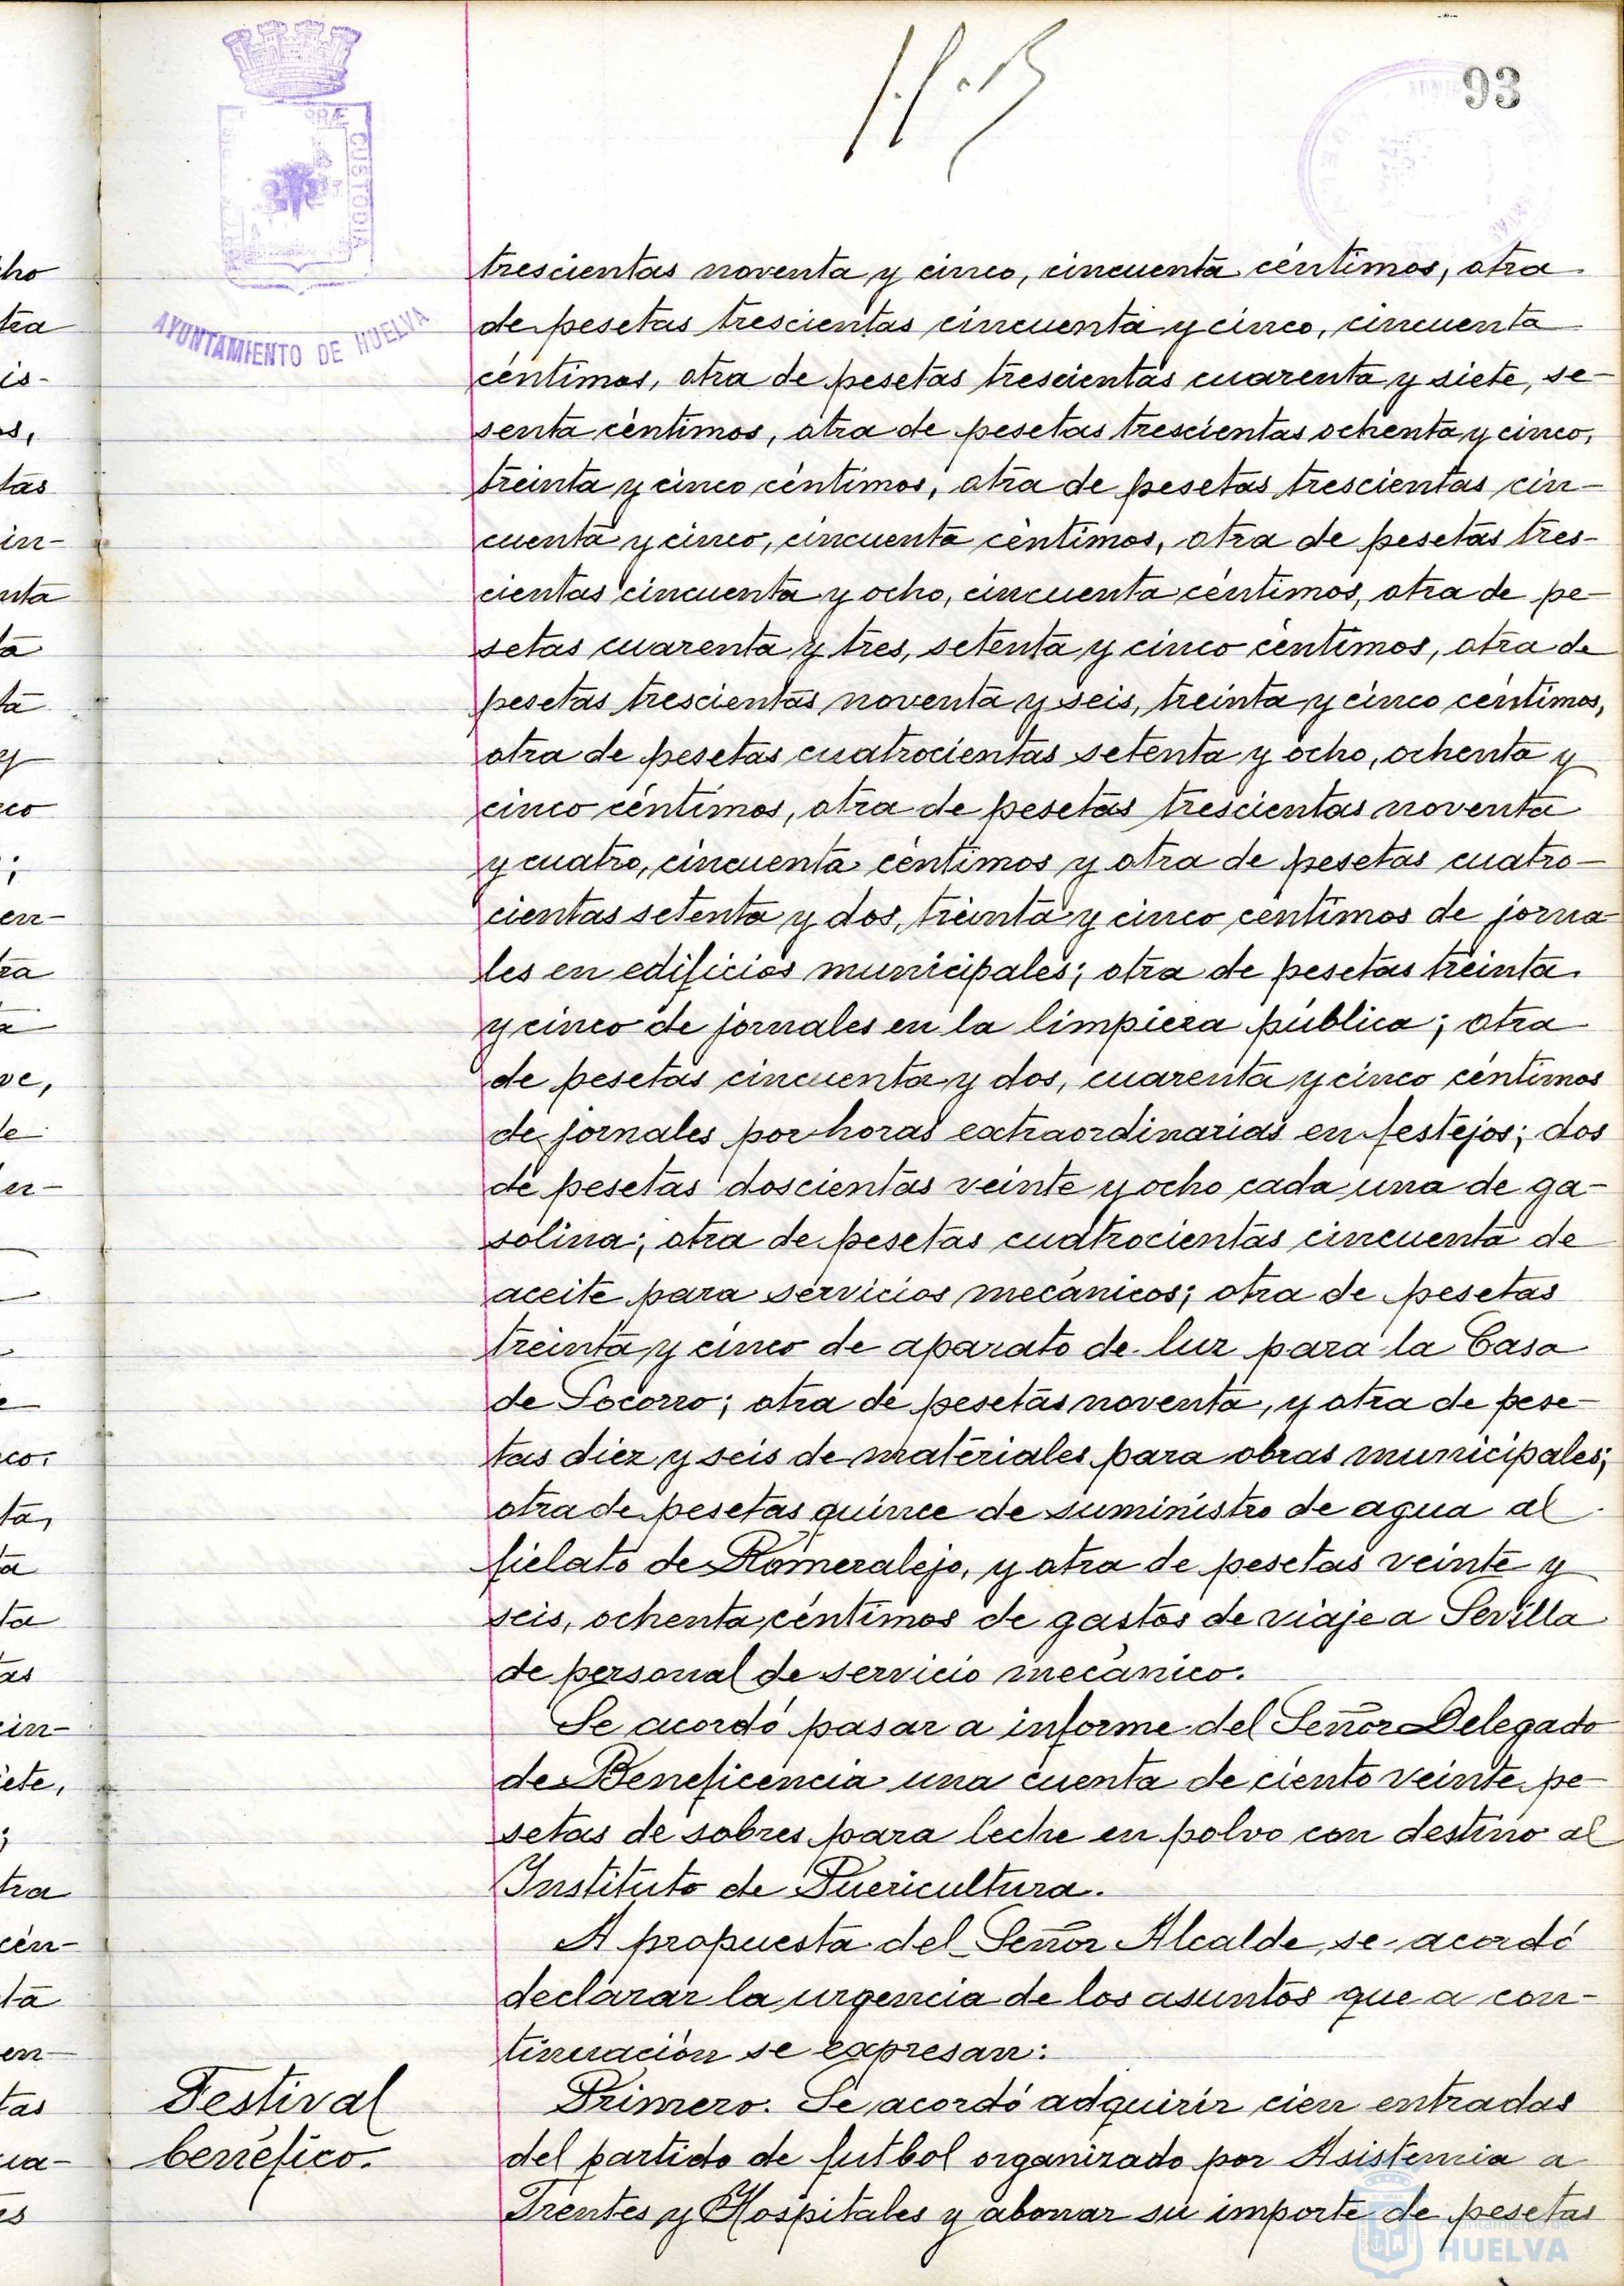 93
PORTVS
MARIS
ET
TERRÆ
CUSTODIA
AYUNTAMIENTO DE HUELVA
trescientas noventa y cinco, cincuenta céntimos, otra
de pesetas trescientas cincuenta y cinco, cincuenta
céntimos, otra de pesetas trescientas cuarenta y siete, se-
senta céntimos, otra de pesetas trescientas ochenta y cinco,
treinta y cinco céntimos, otra de pesetas trescientas cin-
cuenta y cinco, cincuenta céntimos, otra de pesetas tres-
cientas cincuenta y ocho, cincuenta céntimos, otra de pe-
setas cuarenta y tres, setenta y cinco céntimos, otra de
pesetas trescientas noventa y seis, treinta y cinco céntimos,
otra de pesetas cuatrocientas setenta y ocho, ochenta y
cinco céntimos, otra de pesetas trescientas noventa
y cuatro, cincuenta céntimos y otra de pesetas cuatro-
cientas setenta y dos, treinta y cinco céntimos de jorna-
les en edificios municipales; otra de pesetas treinta
y cinco de jornales en la limpieza pública; otra
de pesetas cincuenta y dos, cuarenta y cinco céntimos
de jornales por horas extraordinarias en festejos; dos
de pesetas doscientas veinte y ocho cada una de ga-
solina; otra de pesetas cuatrocientas cincuenta de
aceite para servicios mecánicos; otra de pesetas
treinta y cinco de aparato de luz para la Casa
de Socorro; otra de pesetas noventa, y otra de pese-
tas diez y seis de materiales para obras municipales;
otra de pesetas quince de suministro de agua al
fielato de Romeralejo, y otra de pesetas veinte y
seis, ochenta céntimos de gastos de viaje a Sevilla
de personal de servicio mecánico.
Se acordó pasar a informe del Señor Delegado
de Beneficencia una cuenta de ciento veinte pe-
setas de sobres para leche en polvo con destino al
Instituto de Puericultura.
A propuesta del Señor Alcalde, se acordó
declarar la urgencia de los asuntos que a con-
tinuación se expresan:
Festival
benéfico.
Primero. Se acordó adquirir cien entradas
del partido de futbol organizado por Asistencia a
Frentes y Hospitales y abonar su importe de pesetas
Ayuntamiento de
HUELVA